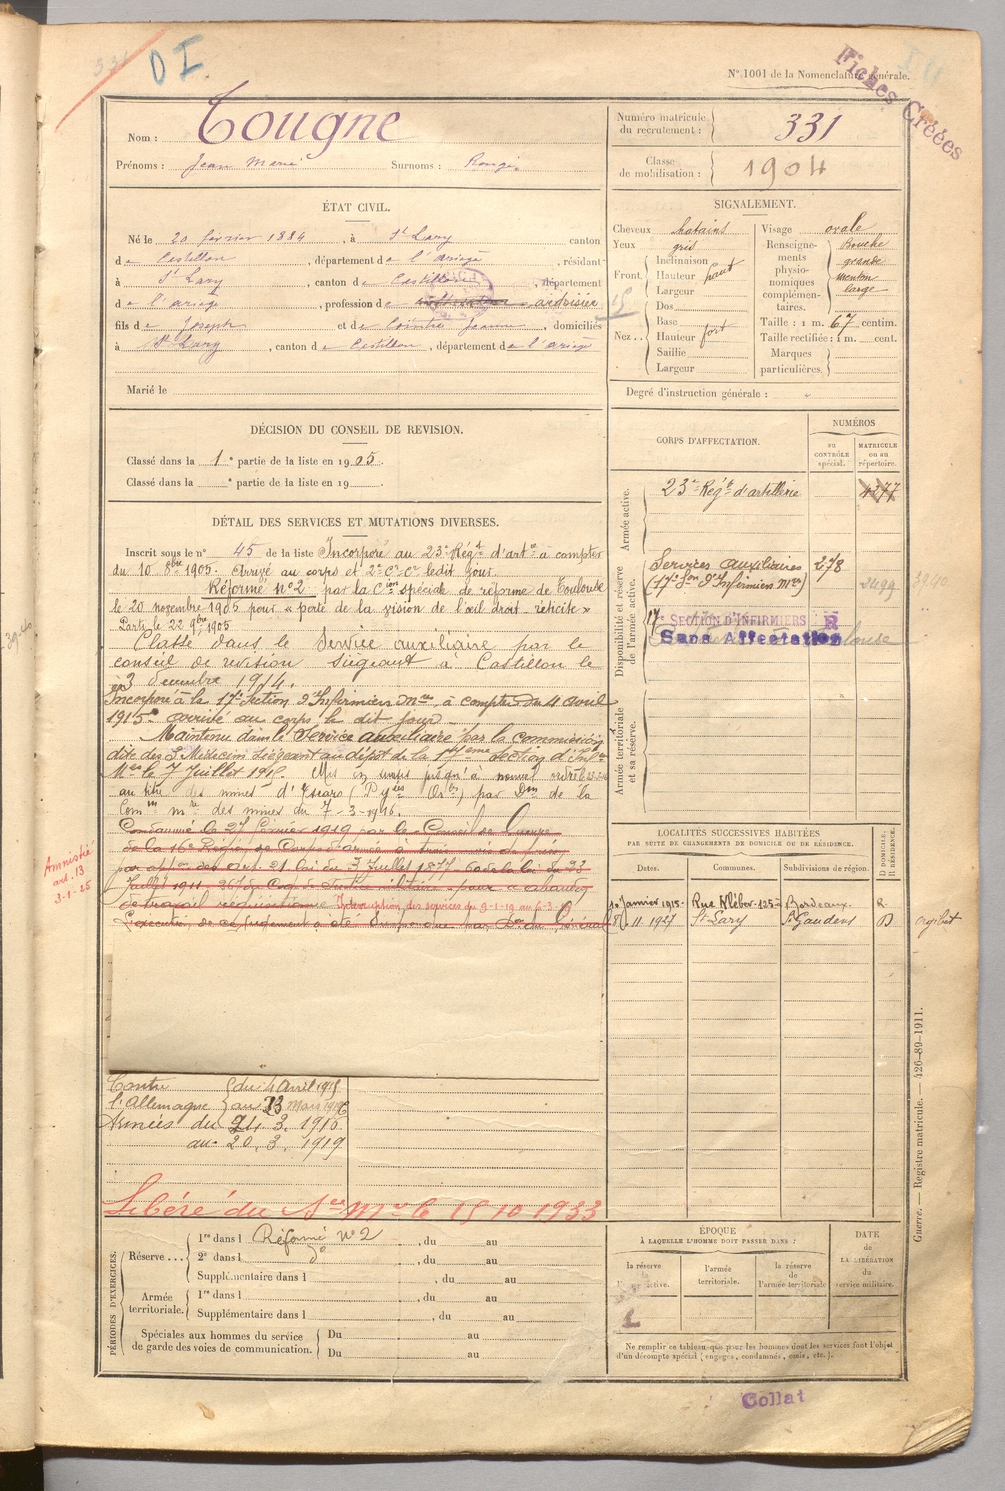 331
D I.
N° 1001 de la Nomenclature générale.
Fiches Créées
Nom : Tougne
Prénoms : Jean Marie Surnoms : Rougé
Numéro matricule du recrutement : 331
Classe de mobilisation : 1904
ÉTAT CIVIL.
Né le 20 février 1884, à St Lary canton
de Castillon, département de l'ariège, résidant
à St Lary, canton de Castillon, département
de l'ariège, profession de ardoisier
fils de Joseph et de Cointre Jeanne, domiciliés
à St Lary, canton de Castillon, département de l'ariège
Marié le
SIGNALEMENT.
Cheveux chatains
Yeux gris
Front. Inclinaison
Hauteur haut
Largeur
Nez.. Dos
Base
Hauteur fort
Saillie
Largeur
Visage ovale
Renseignements physionomiques complémentaires. Bouche grande menton large
Taille : 1 m. 67 centim.
Taille rectifiée : 1 m. cent.
Marques particulières.
Degré d'instruction générale :
15
DÉCISION DU CONSEIL DE REVISION.
Classé dans la 1e partie de la liste en 1905.
Classé dans la e partie de la liste en 19
CORPS D'AFFECTATION.
NUMÉROS
au CONTRÔLE spécial.
MATRICULE ou au répertoire.
Armée active.
23e Régt d'artillerie 4377
Disponibilité et réserve de l'armée active.
Services auxiliaires 278
(17e Son d'Infirmiers Mres) 3499
3240
17e SECTION D'INFIRMIERS R
Sans Affectation
Armée territoriale et sa réserve.
DÉTAIL DES SERVICES ET MUTATIONS DIVERSES.
Inscrit sous le n° 45 de la liste Incorporé au 23e Régt d'artie à compter
du 10 8bre 1905. Arrivé au corps et 2e Cr Cr ledit jour.
Réformé n°2 par la Cion spéciale de réforme de Toulouse
le 20 novembre 1905 pour « perte de la vision de l'œil droit
Parti le 22 9bre 1905
Classé dans le Service auxiliaire par le
conseil de revision siégeant à Castillon le
3 décembre 1914.
Incorporé à la 17e Section d'Infirmiers Mres, à compter du 4 avril
1915. arrivé au corps le dit jour
Maintenu dans le Service auxiliaire par la commission
dite des 3 Médecins siégeant au dépôt de la 17eme Section d'Infres
Mres le 7 Juillet 1915. Mis en sursis jusqu'à nouvel ordre
au titre des mines d' (Pyes Ores) par Don de la
Comon mre des mines du 7-3-1916.
Condamné le 27 février 1919 par le Conseil de Guerre
de la 16e Région de Corps d'armée à trois mois de prison
par appon des art. 21 loi du 3 Juillet 1877 60 de la loi du 23
Juillet 1911 267 du Code de Justice militaire pour « abandon
de travail réquisitionné Interruption des services du 9-1-19 au 6-3-19
L'exécution de ce jugement a été suspendue par Don du Général
Amnistié
art. 13
3-1-25
LOCALITÉS SUCCESSIVES HABITÉES
PAR SUITE DE CHANGEMENTS DE DOMICILE OU DE RÉSIDENCE.
Dates. Communes. Subdivisions de région. D DOMICILE, R RÉSIDENCE.
10 Janvier 1915 Rue Kléber-125 Bordeaux. R
11 1927 St Lary St Gaudens D
Contre l'Allemagne du 4 Avril 1915
au 23 mars 1916
Armées du 24. 3. 1916
au 20. 3. 1919
Libéré du Sce Mre le 15 10 1933
PÉRIODES D'EXERCICES.
Réserve... 1re dans l Réformé n°2, du au
2e dans l do, du au
Supplémentaire dans l, du au
Armée territoriale. 1re dans l, du au
Supplémentaire dans l, du au
Spéciales aux hommes du service de garde des voies de communication. Du au
Du au
ÉPOQUE
À LAQUELLE L'HOMME DOIT PASSER DANS :
la réserve de l'active.
l'armée territoriale.
la réserve de l'armée territoriale
DATE de LA LIBÉRATION du service militaire.
Ne remplir ce tableau que pour les hommes dont les services font l'objet
d'un décompte spécial (engagés, condamnés, omis, etc.).
Guerre. — Registre matricule. — 426-89-1911.
Collat